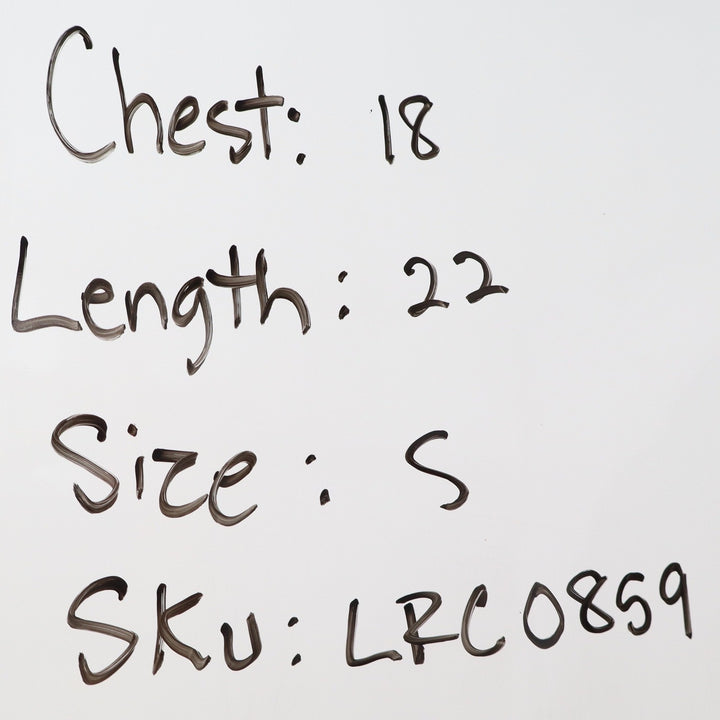 Chest: 18
Length: 22
Size: S
SKU: LRC0859